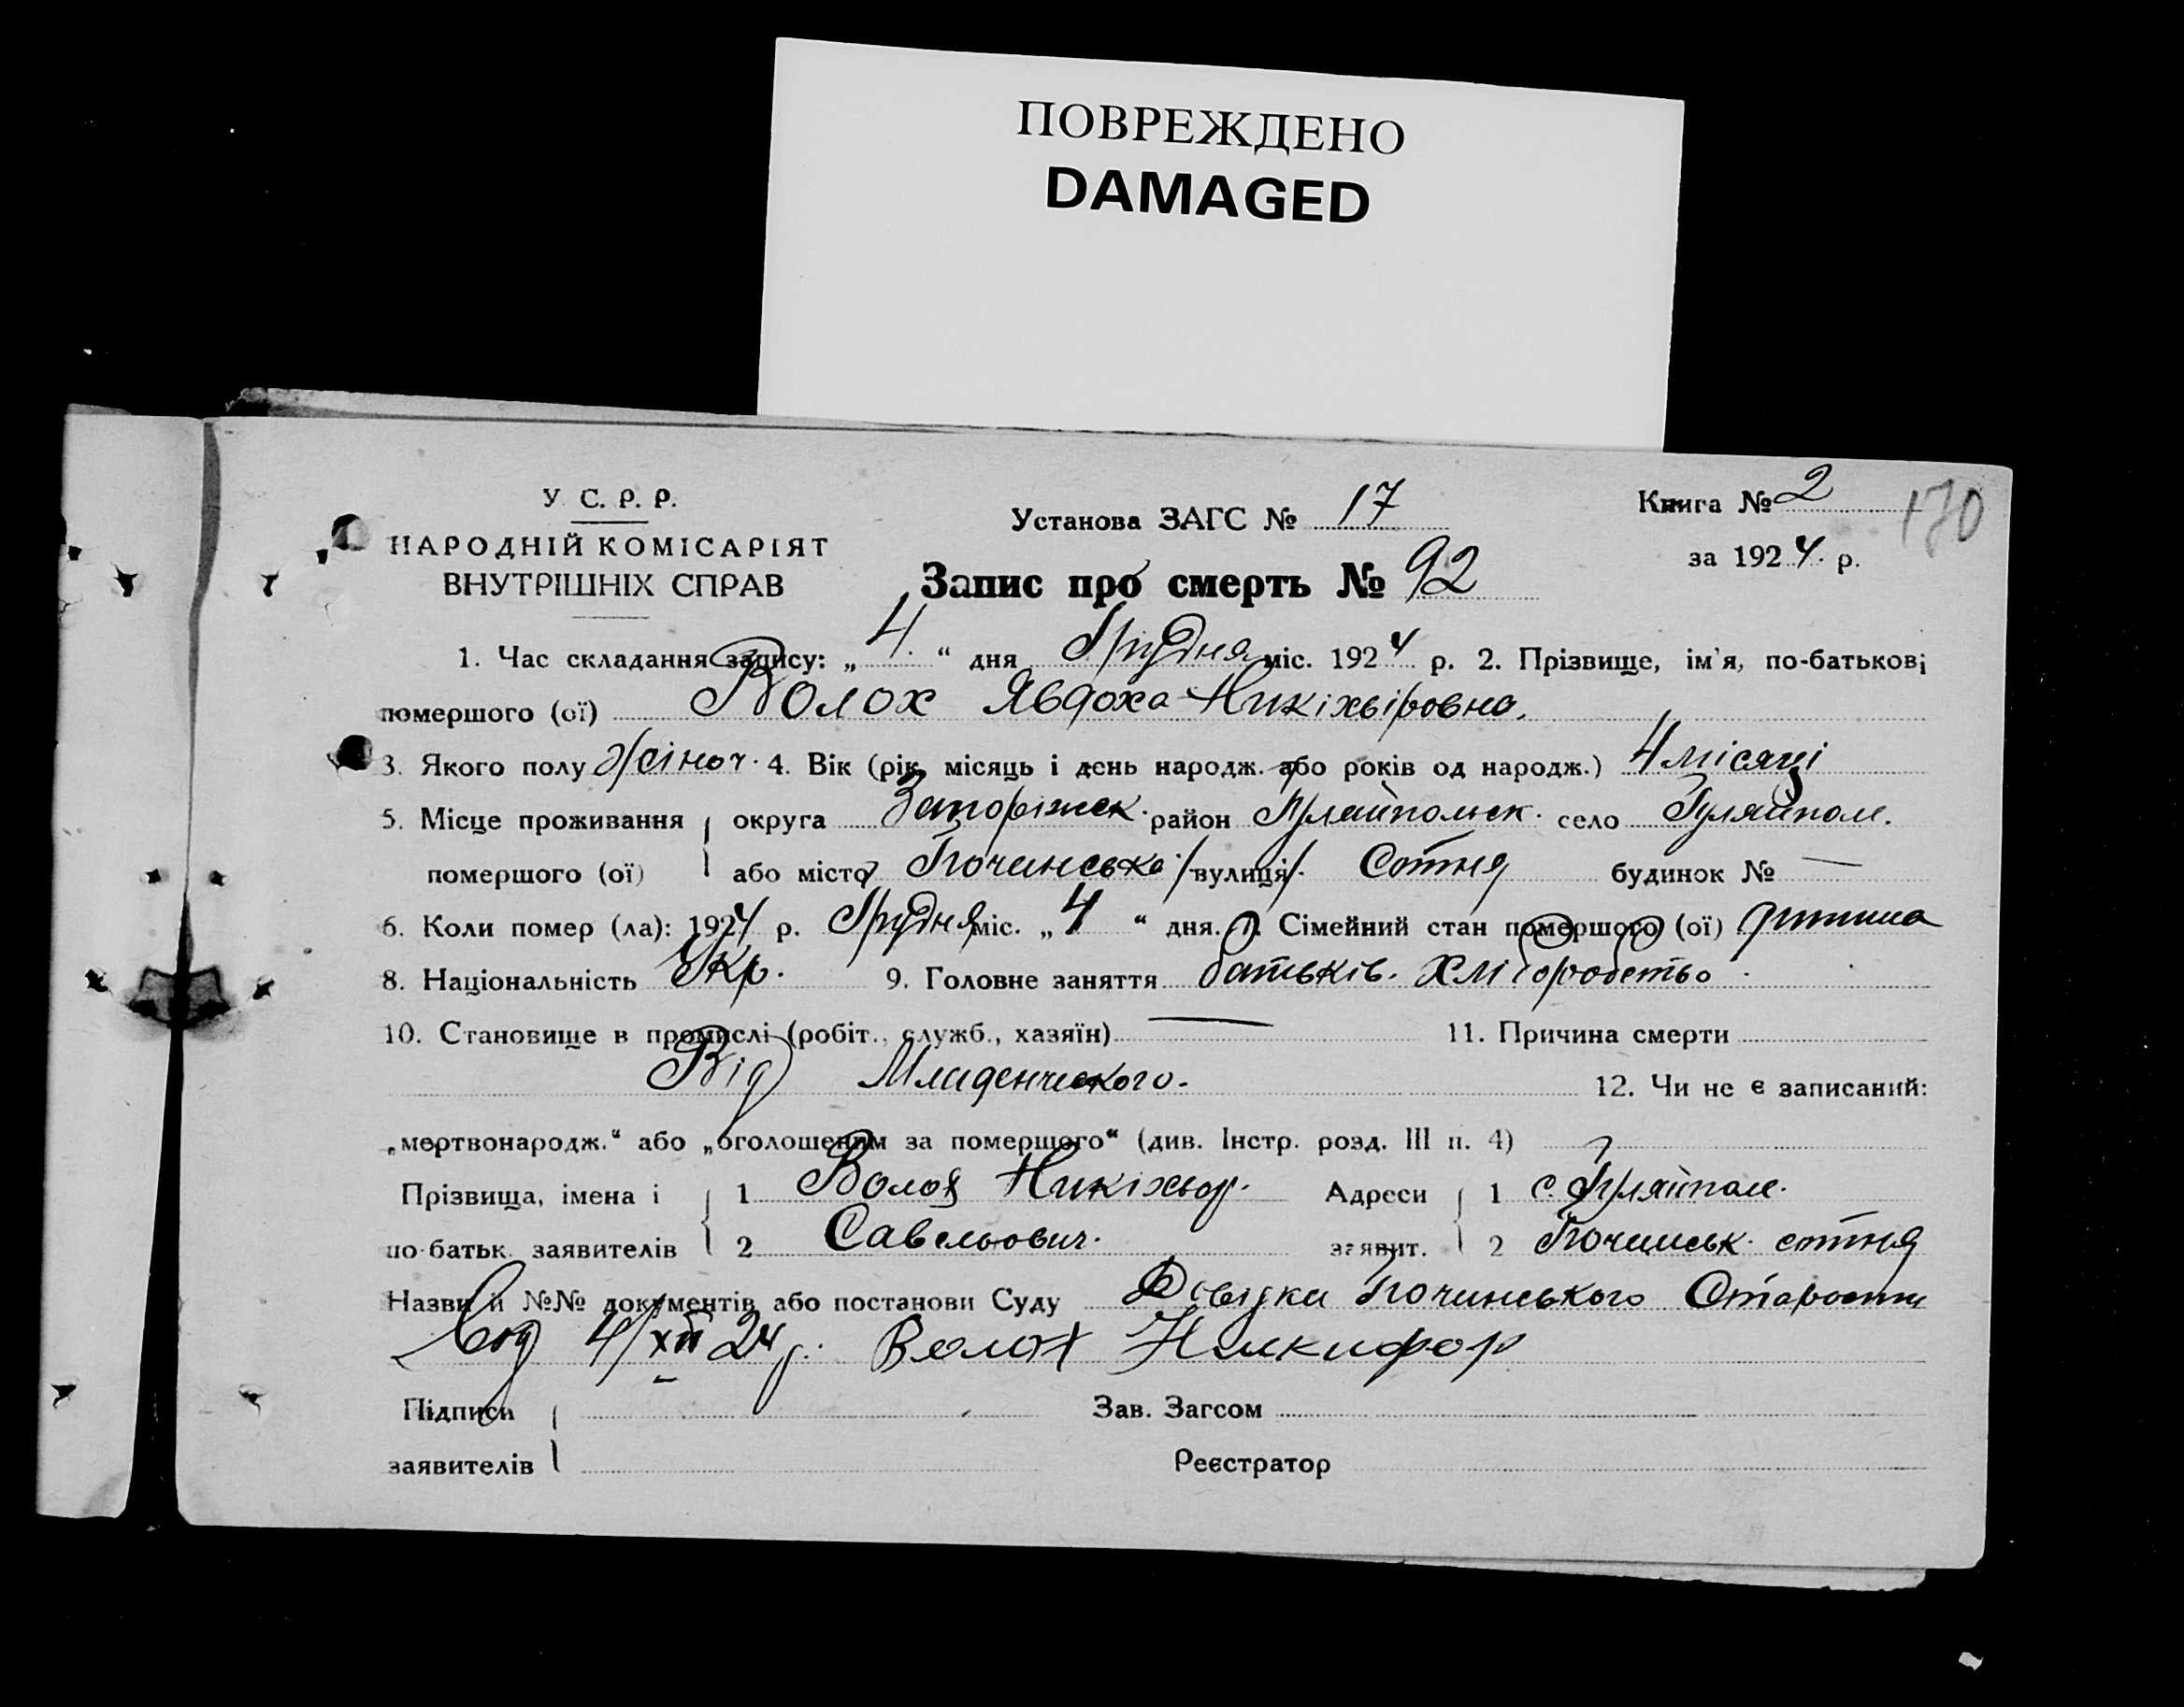 ПОВРЕЖДЕНО
DAMAGED
У С. Р. Р.
НАРОДНІЙ КОМІСАРІЯТ
ВНУТРІШНІХ СПРАВ
Установа ЗАГС № 17
Книга № 2
170
за 1924 р.
Запис про смерть № 92
1. Час складання запису: „ 4. “ дня Грудня міс. 1924 р. 2. Прізвище, ім'я, по-батькові
помершого (ої) Волох Явдоха Никіхвіровна.
3. Якого полу жіноч. 4. Вік (рік, місяць і день народж. або років од народж.) 4 місяці
5. Місце проживання округа Запоріжск. район Гуляйпольск. село Гуляйполе.
помершого (ої) або місто Починська /вулиця/. Сотня будинок № —
6. Коли помер (ла): 1924 р. Грудня міс. „ 4 “ дня. 7. Сімейний стан помершого (ої) дитина
8. Національність Укр. 9. Головне заняття батьків. хліборобство
10. Становище в промислі (робіт., служб., хазяїн) — 11. Причина смерти
Від Младенческого. 12. Чи не є записаний:
„мертвонародж.“ або „оголошеним за померщого“ (див. Інстр. розд. III п. 4)
Прізвища, імена і 1 Волох Никіхвор. Адреси 1 с. Гуляйполе.
по-батьк. заявителів 2 Савельович. заявит. 2 Починськ. сотня
Назви й №№ документів або постанови Суду Довідки Починського Старости
Від 4/XII 24 р. Волох Никифор
Підписи Зав. Загсом
заявителів Реєстратор